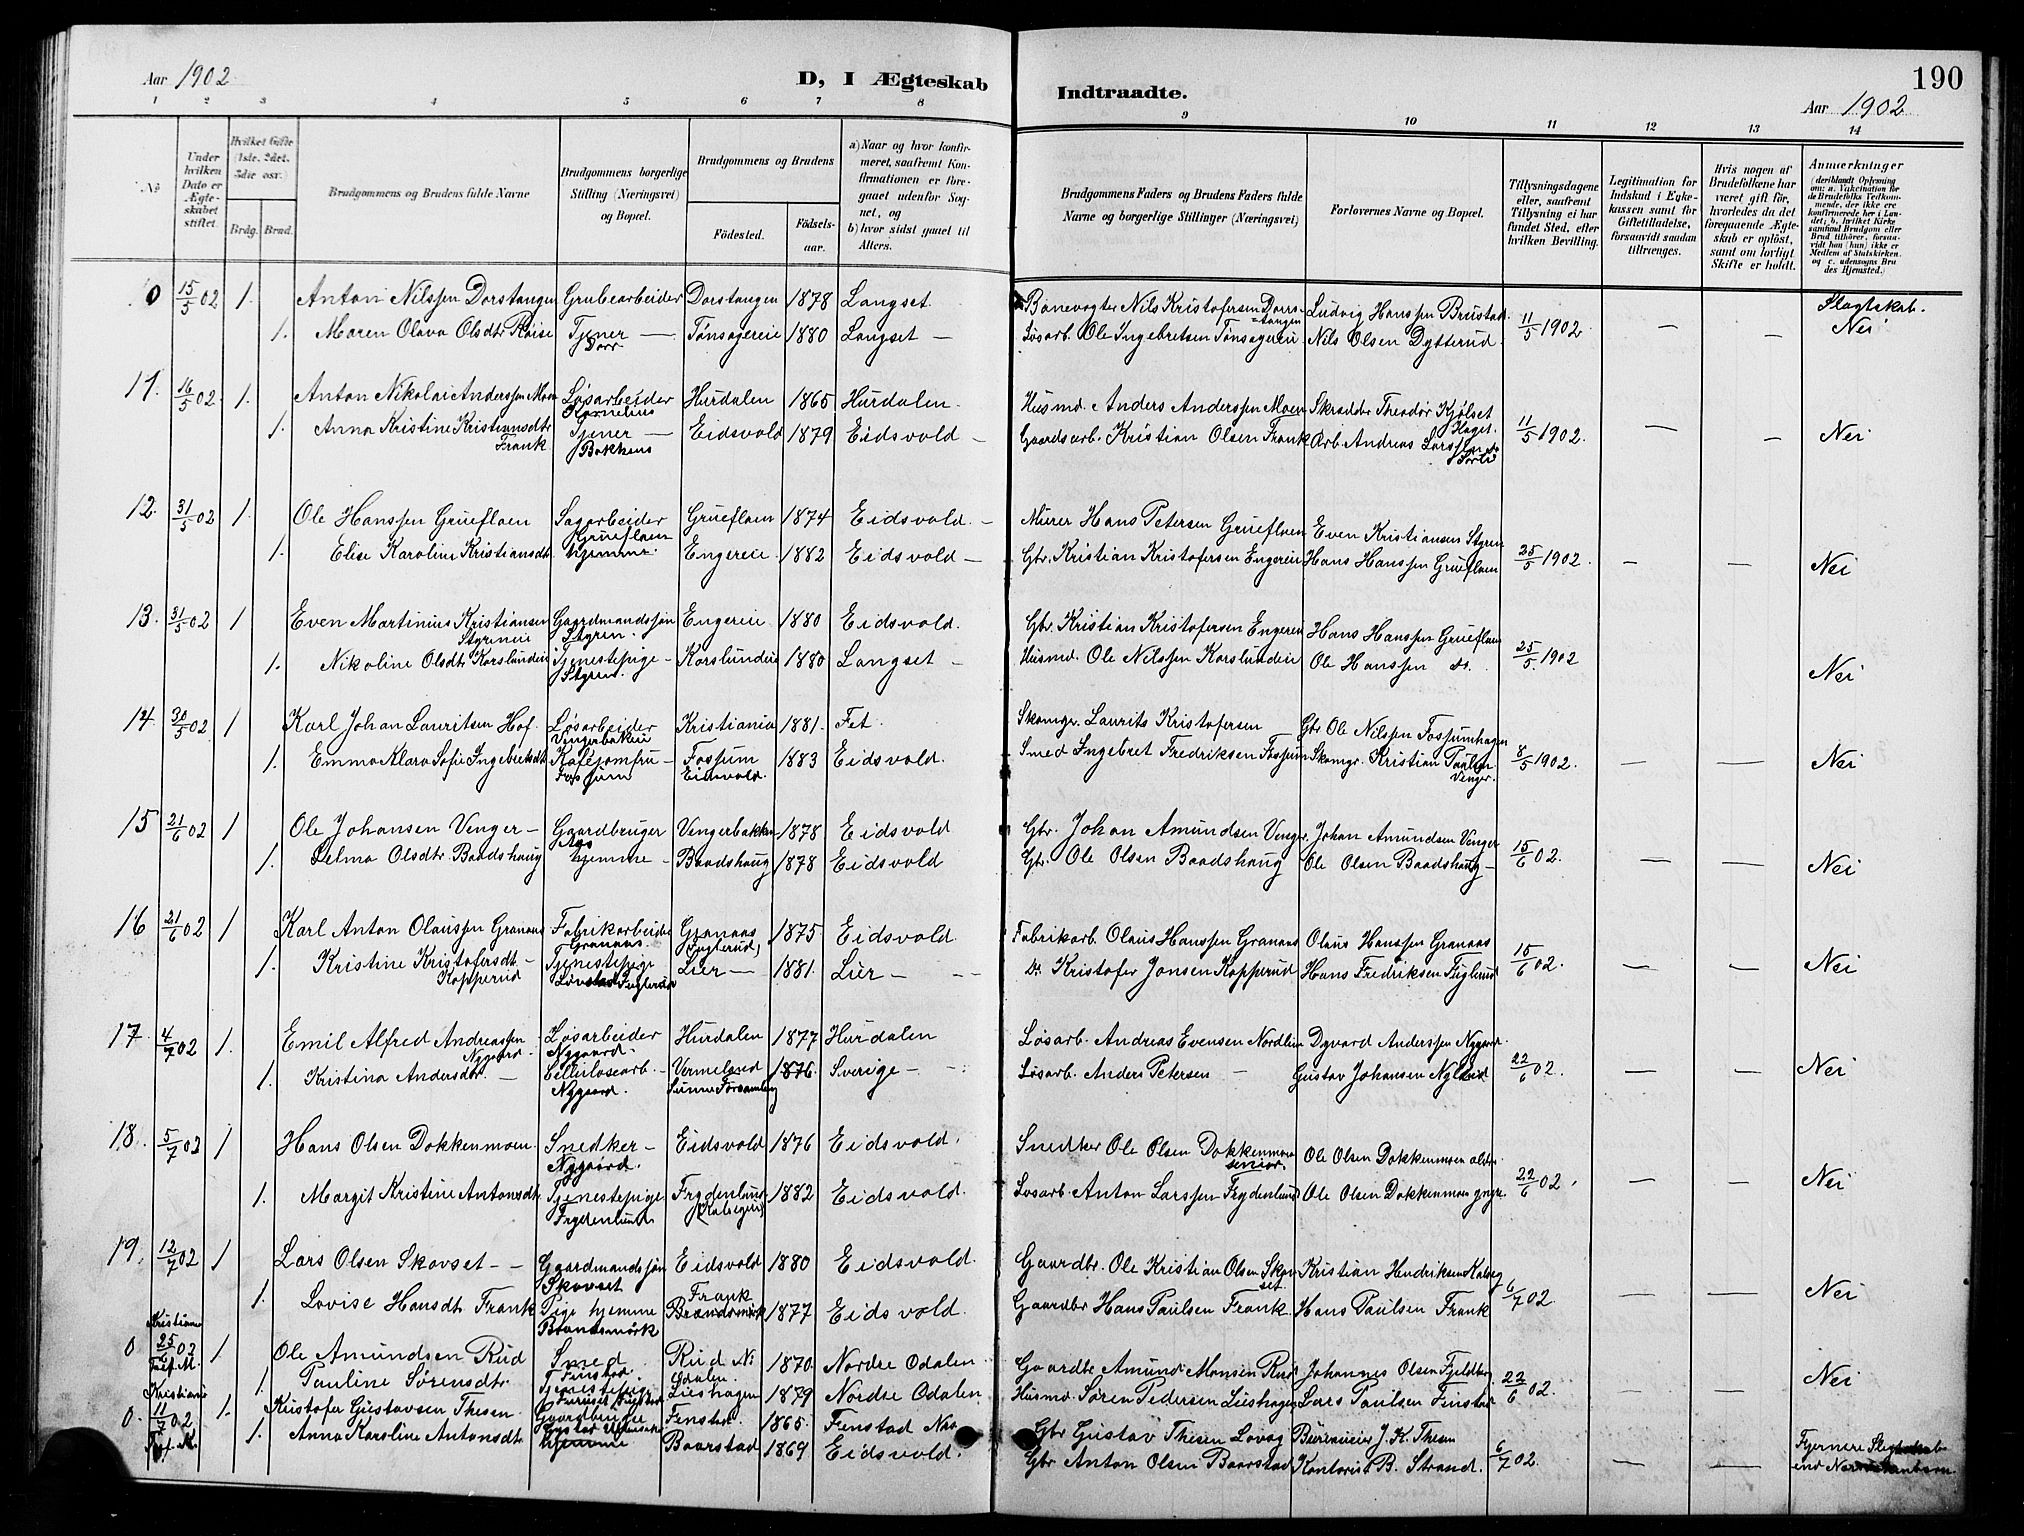 Aar 1902
D, I Ægteskab
Indtraadte.
190
Aar 1902
1 2 3 4 5 6 7 8 9 10 11 12 13 14
No
Under hvilken Dato er Ægteskabet stiftet.
Hvilket Gifte (1ste, 2det, 3die osv.)
Brdg. Brud.
Brudgommens og Brudens fulde Navne
Brudgommens borgerlige Stilling (Næringsvei) og Bopæl.
Brudgommens og Brudens
Fødested.
Fødselsaar.
a) Naar og hvor konfirmeret, saafremt Konfirmationen er foregaaet udenfor Sognet, og
b) hvor sidst gaaet til Alters.
Brudgommens Faders og Brudens Faders fulde Navne og borgerlige Stillinger (Næringsvei)
Forlovernes Navne og Bopæl.
Tillysningsdagene eller, saafremt Tillysning ei har fundet Sted, efter hvilken Bevilling.
Legitimation for Indskud i Enkekassen samt for Giftetilladelse, forsaavidt saadan tiltrænges.
Hvis nogen af Brudefolkene har været gift før, hvorledes da det foregaaende Ægteskab er opløst, samt om lovligt Skifte er holdt.
Anmerkninger
(deriblandt Oplysning om: a. Vakcination for de Brudefolks Vedkommende, der ikke ere konfirmerede her i Landet; b. hvilket Kirkesamfund Brudgom eller Brud tilhører, forsaavidt han (hun) ikke er Medlem af Statskirken, og c. udensogns Brudes Hjemsted.)
0 15/5 02 1. Anton Nilssen Dorstangen Grubearbeider Dorstangen 1878 Langset Banevogter Nils Kristofersen Dorrstangen Ludvig Hanssen Brustad 11/5 1902 — — Slagtskab. Nei
1. Maren Olava Olsdtr Røise Tjener — Dorr Tønsagereie 1880 Langset — Løsarb. Ole Ingebretsen Tønsagereie Nils Olsen Dytterud
11. 16/5 02 1. Anton Nikolai Anderssen Moen Løsarbeider Kornelius Hurdalen 1865 Hurdalen. Husmd. Anders Anderssen Moen Skrædder Theodor Kjølset 11/5 1902. — — Nei
1. Anna Kristine Kristiansdtr Frank Tjener — Bakkens Eidsvold 1879 Eidsvold — Gaardsarb. Kristian Olsen Frank Arb. Andreas Larssen
12. 31/5 02 1. Ole Hanssen Grueflaen Sagarbeider Grueflaen Grueflaen 1874 Eidsvold. — Murer Hans Petersen Grueflaen Even Kristiansen Styren 25/5 1902. — — Nei
1. Elise Karoline Kristiansdt. hjemme. Engereie 1882 Eidsvold — Gbr. Kristian Kristofersen Engereie Hans Hanssen Grueflaen
13. 31/5 02 1 Even Martinius Kristiansen Styreneie Gaardmandssøn Styren. Engereie 1880 Eidsvold. Gbr. Kristian Kristofersen Engereie Hans Hanssen Grueflaen 25/5 1902 Nei
1. Nikoline Olsdtr Korslundeie Tjenestepige — Styren. Korslundeie 1880 Langset — Husmd. Ole Nilssen Korslundeie Ole Hanssen do.
14. 30/5 02 1 Karl Johan Lauritsen Hof. Løsarbeider Vengerbakken Kristiania 1881. Fet. Skomgr. Laurits Kristofersen Gbr Ole Nilssen Fossumhagen 8/5 1902. — — Nei
1. Emma Klara Sofie Ingebretsdt. Kafejomfru — Fossum Fossum Eidsvold. 1883 Eidsvold. Smed Ingebret Fredriksen Fossum Skomgr. Kristian Paulsen Venger.
15 21/6 02 1 Ole Johansen Venger — Gaardbruger Aas Vengerbakken 1878 Eidsvold Gbr. Johan Amundsen Venger Johan Amundsen Venger 15/6 02. — — Nei
1. Selma Olsdtr. Baadshaug hjemme — Baadshaug 1878 Eidsvold Gbr. Ole Olsen Baadshaug Ole Olsen Baadshaug —
16 21/6 02 1 Karl Anton Olaussen Granaas Fabrikarbeider Granaas. Granaas Fuglerud, 1875 Eidsvold. Fabrikarb. Olaus Hanssen Granaas Olaus Hanssen Granaas 15/6 02. — — Nei
1. Kristine Kristofersdt. — Kopperud Tjenestepige Fuglerud Lier — 1881. Lier — Do. Kristofer Jonsen Kopperud Hans Fredriksen Fuglerud
17. 4/7 02 1. Emil Alfred Andreassen Nygaard Løsarbeider Nygaard. Hurdalen 1877 Hurdalen Løsarb. Andreas Evensen Nordlien Dyvard Anderssen Nygaard. 22/6 02. — — Nei
1. Kristina Andersdtr. — Celluloсearb. Nygaard. Vermeland Sunne Forsamling 1876. Sverige — Løsarb. Anders Petersen — Gustav Johansen
18. 5/7 02 1 Hans Olsen Dokkenmoen. Snedker — Nygaard. Eidsvold 1876 Eidsvold. Snedker Ole Olsen Dokkenmoen senior. Ole Olsen Dokkenmoen ældre 22/6 02. — — Nei
1. Margit Kristine Antonsdt. Tjenestepige Frydenlund Frydenlund 1882 Eidsvold. Løsarb. Anton Larssen Frydenlund Ole Olsen Dokkenmoen yngre.
19. 12/7 02 1 Lars Olsen Skovset — — Gaardmandssøn Skovset Eidsvold 1880 Eidsvold. Gaardbr. Ole Kristian Olsen Skovset Kristian Hendriksen 6/7 02. — — Nei
1. Lovise Hansdt. Frank Pige hjemme Brandsmork Frank Brandsmork 1877 Eidsvold. Gaardbr Hans Paulsen Frank. Hans Paulsen Frank
0 Kristiania 25/6 02 1 Ole Amundsen Rud Smed Finstad. Rud N. Odalen. 1870. Nordre Odalen. Gaardbr Amund Monsen Rud Johannes Olsen 22/6 02. — — Nei
1. Pauline Sørensdtr. Tjenestepige Lieshagen 1879 Nordre Odalen Husmd. Søren Pedersen Lieshagen Lars Paulsen Finstad
0. Kristiania 11/7 02 1. Kristofer Gustavsen Thesen. Gaardbruger Fenstad. 1865. Fenstad Nes Gbr Gustav Thesen J. K. Thesen 6/7 02. — — Fjernere
1. Anna Karoline Antonsdt. hjemme Baarstad 1869 Eidsvold. Gbr Anton Olsen Baarstad Kontorist B. Strand.